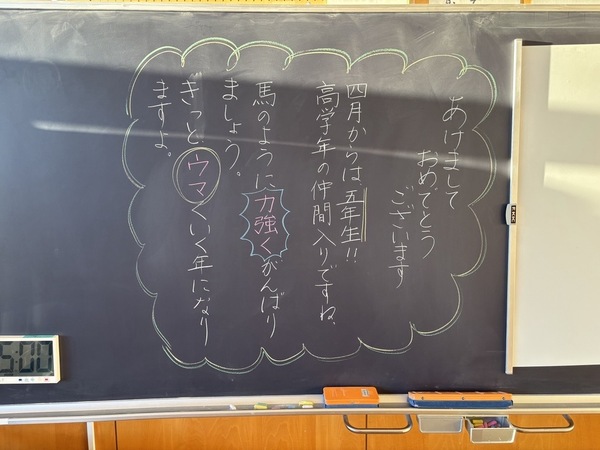 あけまして
おめでとう
ございます
四月からは五年生!!
高学年の仲間入りですね。
馬のように力強くがんばり
ましょう。
きっとウマくいく年になり
ますよ。
5:00